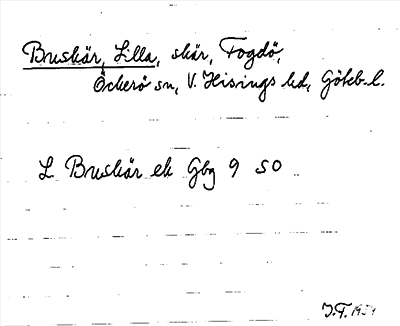 Buskär, Lilla, skär, Fogdö,
Öckerö sn, V. Hisings hd, Göteb. l.
L Buskär ek Gbg 9 SO
J.F. 1954